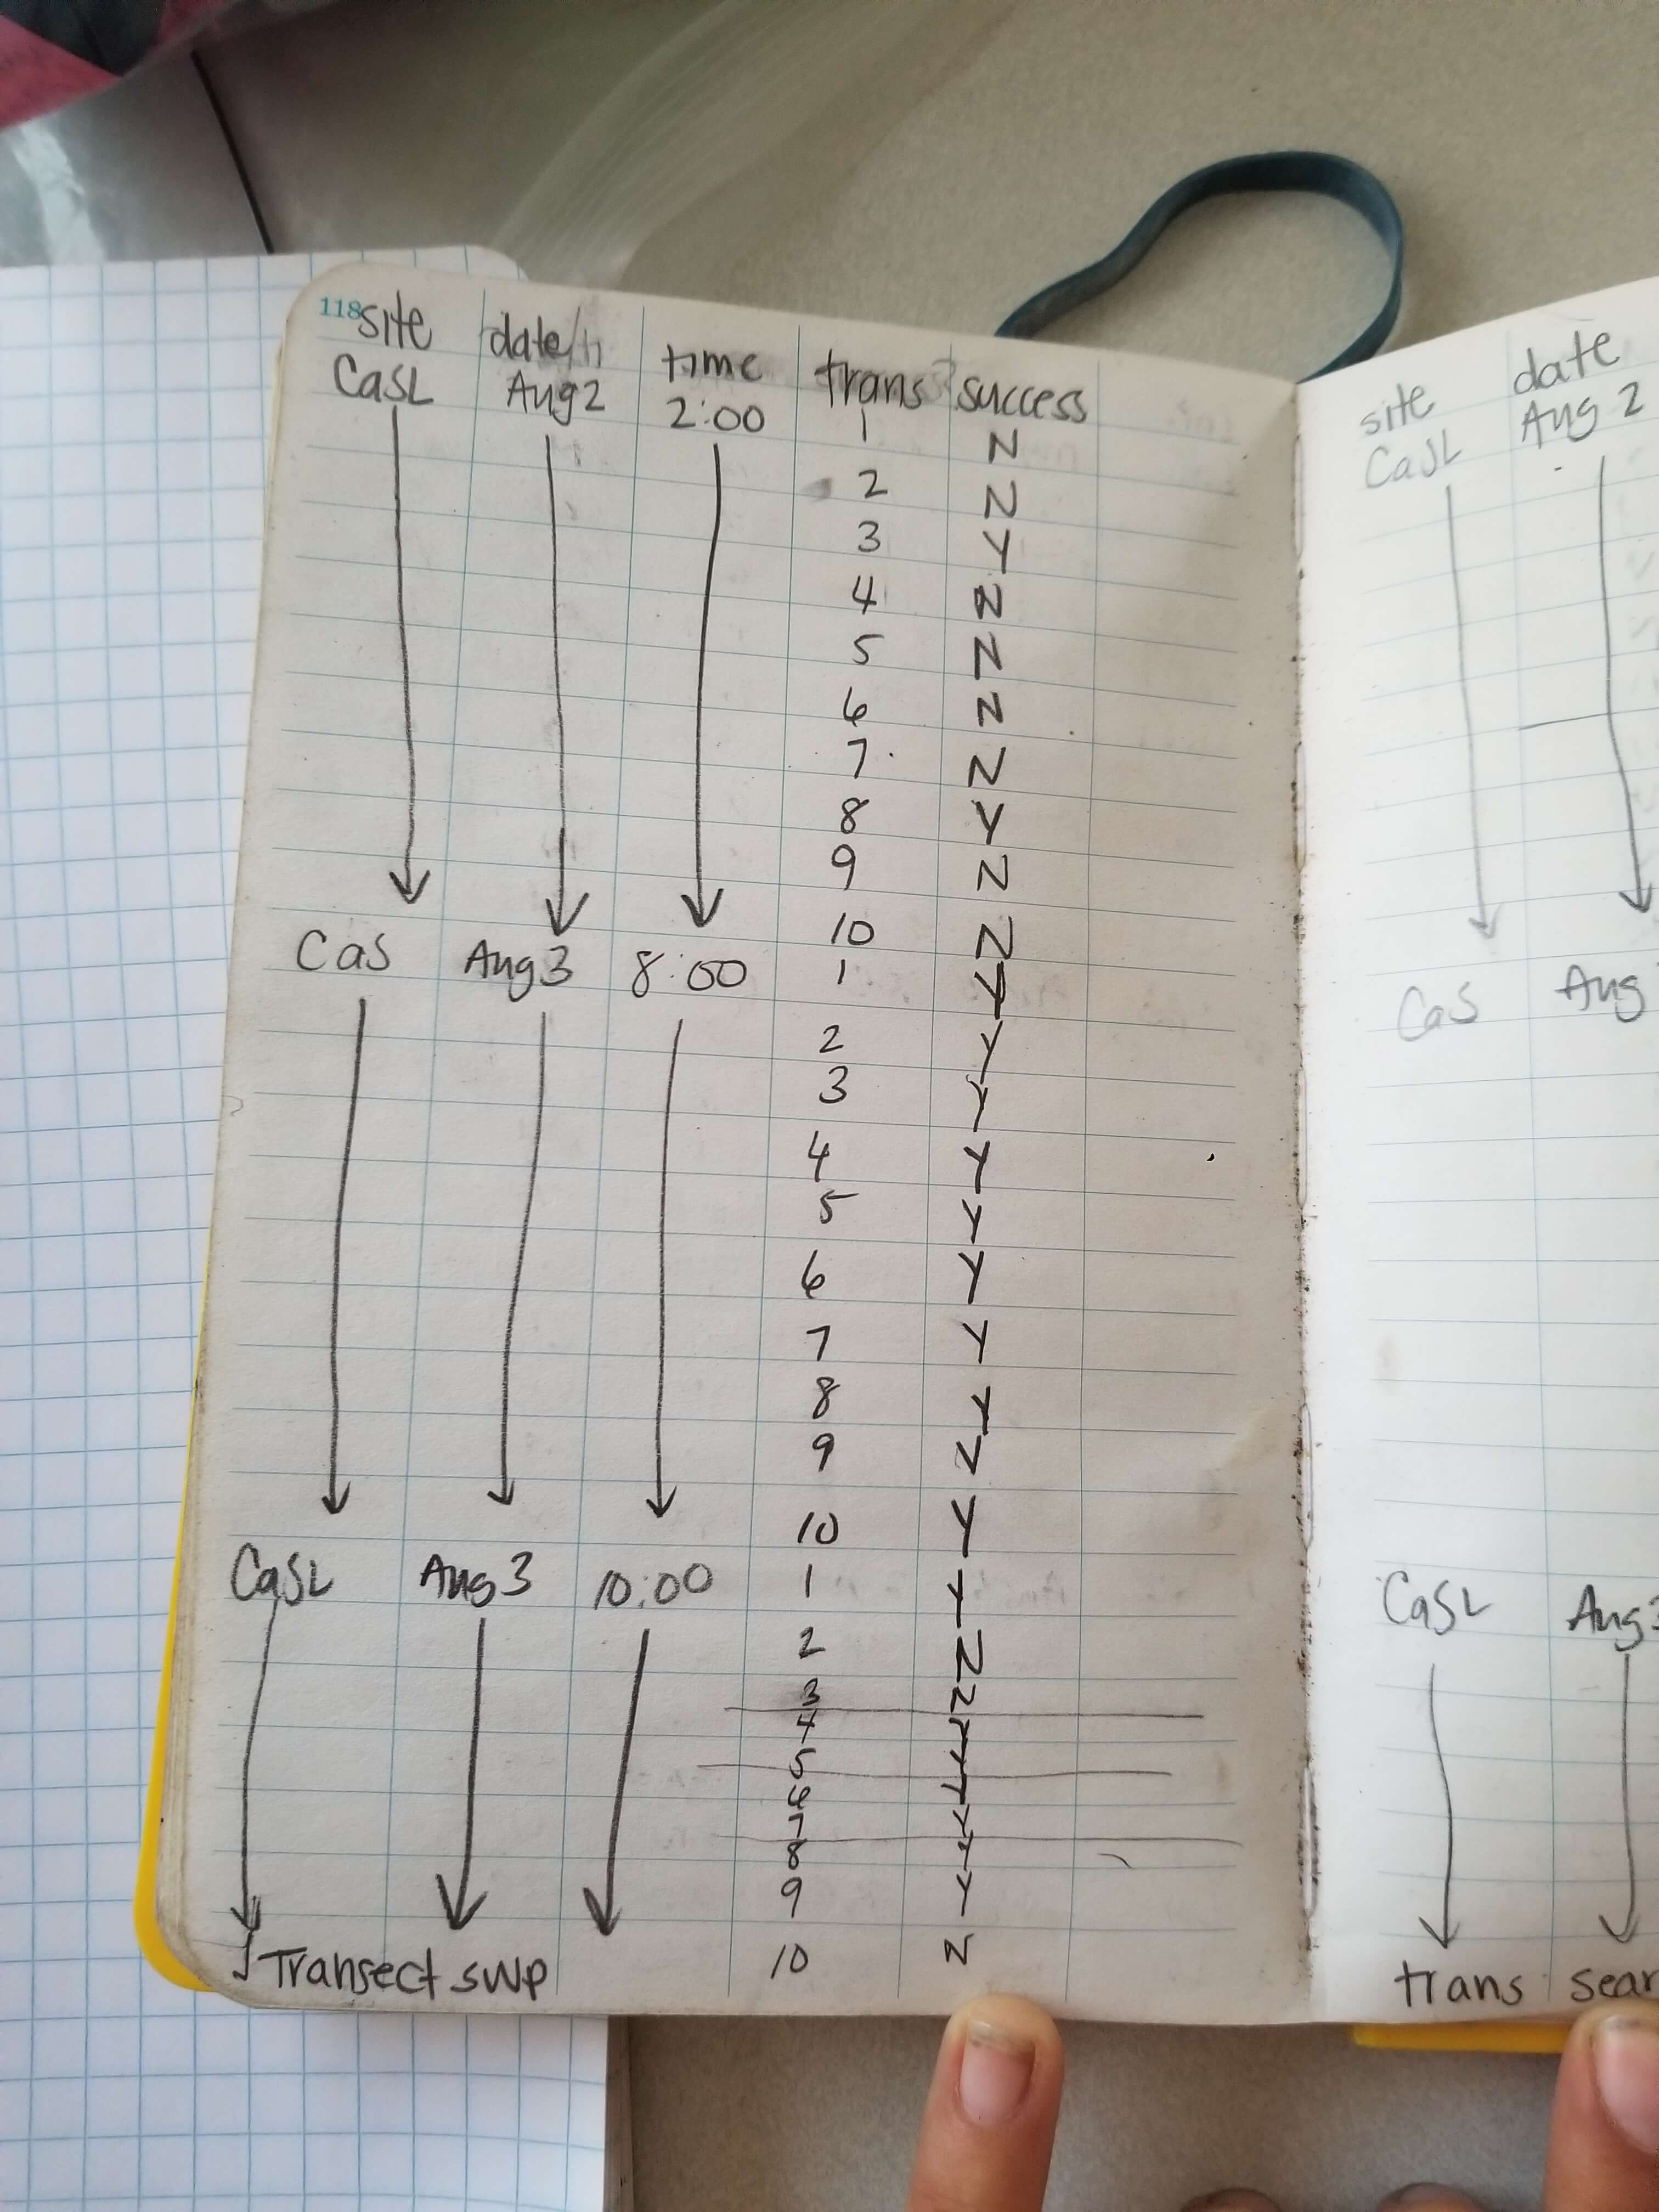 118 site date/ti time trans success
CasL Aug 2 2:00 1 N
2 N
3 Y
4 N
5 N
6 N
7 N
8 Y
9 N
10 N
Cas Aug 3 8:00 1 Y
2 Y
3 Y
4 Y
5 Y
6 Y
7 Y
8 Y
9 Y
10 Y
CasL Aug 3 10:00 1 Y
2 N
3 N
4 Y
5 Y
6 Y
7 Y
8 Y
9 Y
10 N
Transect swp
site date
CasL Aug 2
Cas Aug
CasL Aug 3
trans sear